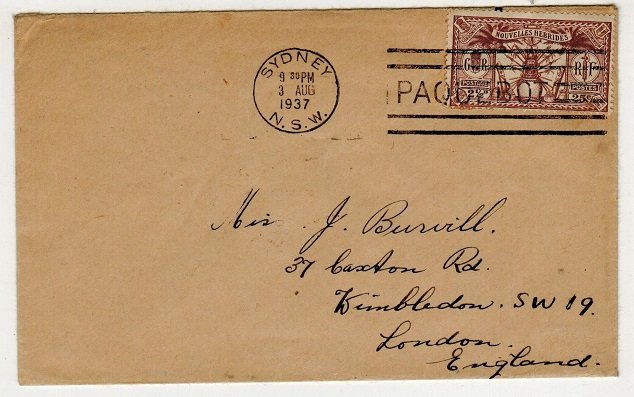 SYDNEY
9 30 PM
3 AUG
1937
N.S.W.
PAQUEBOT
NOUVELLES HEBRIDES
G R
R F
POSTAGE
POSTES
2½D
25c
Mis J. Burvill.
37 Caxton Rd.
Wimbledon. SW 19.
London.
England.